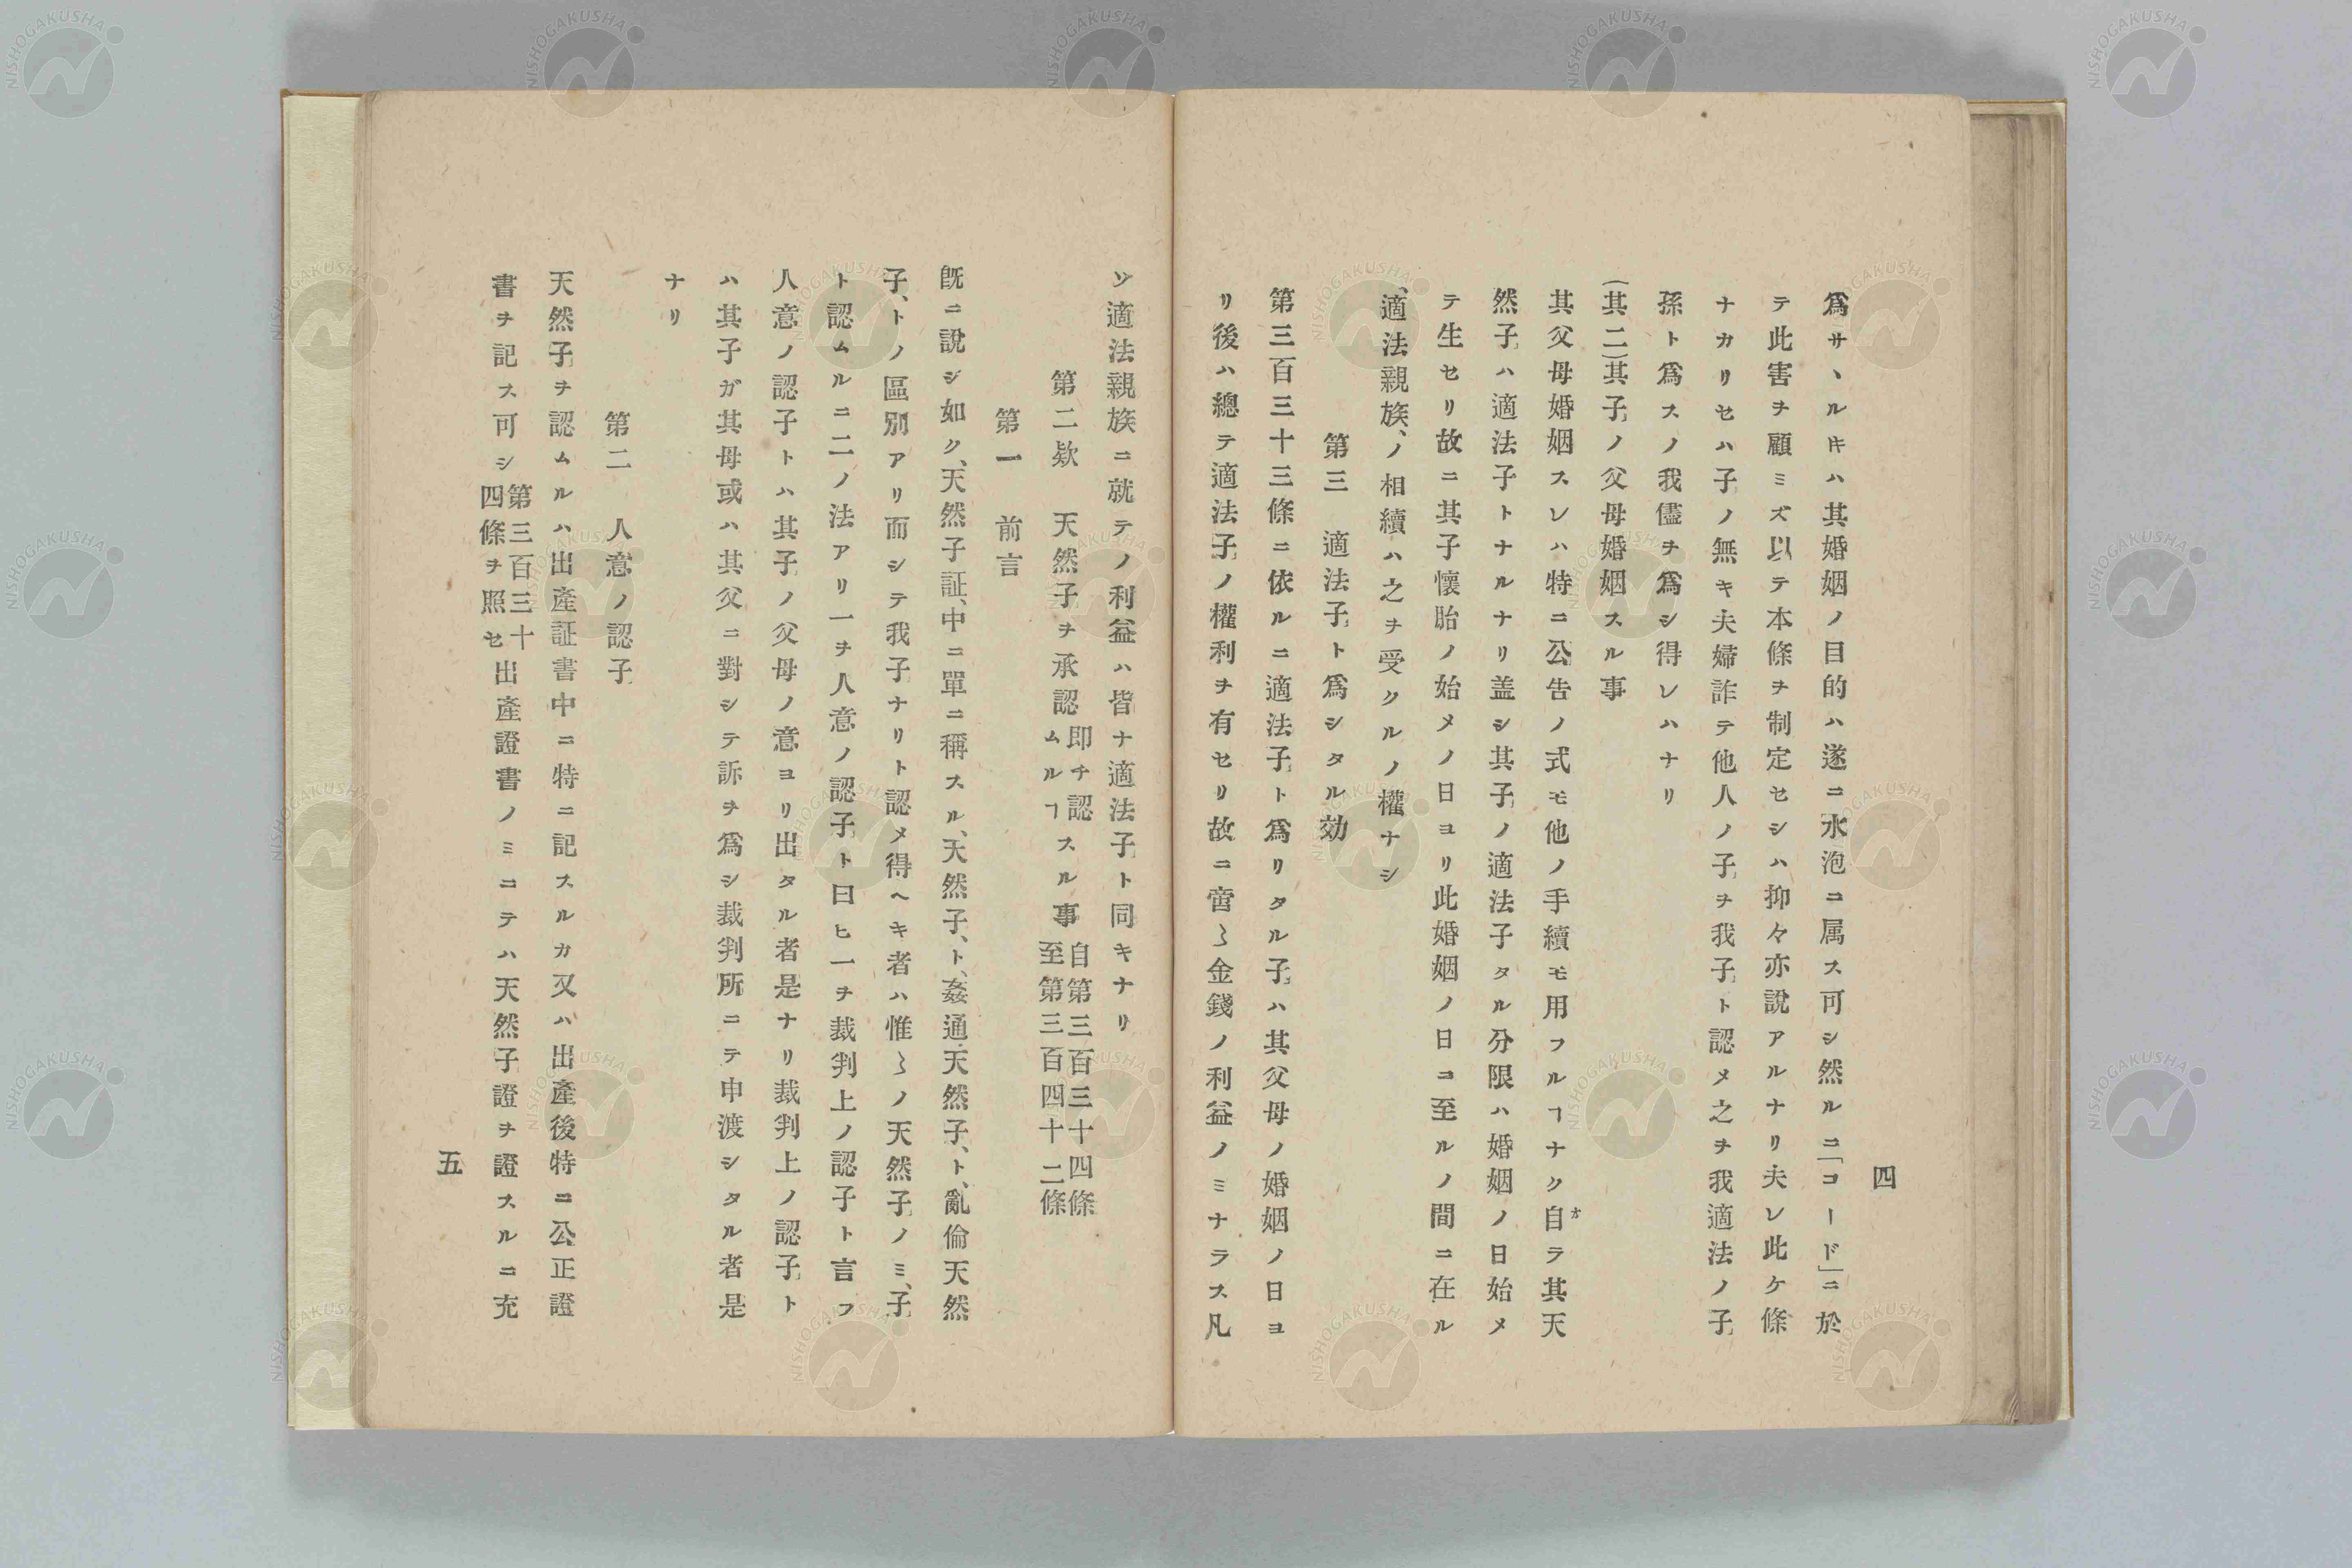 四
爲サヽルキハ其婚姻ノ目的ハ遂ニ水泡ニ属ス可シ然ルニ「コード」ニ於
テ此害ヲ顧ミズ以テ本條ヲ制定セシハ抑々亦說アルナリ夫レ此ケ條
ナカリセハ子ノ無キ夫婦詐テ他人ノ子ヲ我子ト認メ之ヲ我適法ノ子
孫ト爲スノ我儘ヲ爲シ得レハナリ
(其二)其子ノ父母婚姻スル事
其父母婚姻スレハ特ニ公告ノ式モ他ノ手續モ用フルヿナク自ラ其天
オ
然子ハ適法子トナルナリ盖シ其子ノ適法子タル分限ハ婚姻ノ日始メ
テ生セリ故ニ其子懷胎ノ始メノ日ヨリ此婚姻ノ日ニ至ルノ間ニ在ル
、適法親族、ノ相續ハ之ヲ受クルノ權ナシ
第三 適法子ト爲シタル効
第三百三十三條ニ依ルニ適法子ト爲リタル子ハ其父母ノ婚姻ノ日ヨ
リ後ハ總テ適法子ノ權利ヲ有セリ故ニ啻〻金錢ノ利益ノミナラス凡
ソ適法親族ニ就テノ利益ハ皆ナ適法子ト同キナリ
第二欵 天然子ヲ承認 即チ認ムルヿ スル事 自第三百三十四條 至第三百四十二條
第一 前言
旣ニ說シ如ク、天然子証、中ニ單ニ稱スル、天然子、ト、姦通天然子、ト、亂倫天然
子、トノ區別アリ而シテ我子ナリト認メ得ヘキ者ハ惟〻ノ天然子ノミ、子
ト認ムルニ二ノ法アリ一ヲ人意ノ認子ト曰ヒ一ヲ裁判上ノ認子ト言フ
人意ノ認子トハ其子ノ父母ノ意ヨリ出タル者是ナリ裁判上ノ認子ト
ハ其子ガ其母或ハ其父ニ對シテ訴ヲ爲シ裁判所ニテ申渡シタル者是
ナリ
第二 人意ノ認子
天然子ヲ認ムルハ出產証書中ニ特ニ記スルカ又ハ出產後特ニ公正證
書ヲ記ス可シ 第三百三十四條ヲ照セ 出產證書ノミニテハ天然子證ヲ證スルニ充
五
NISHOGAKUSHA